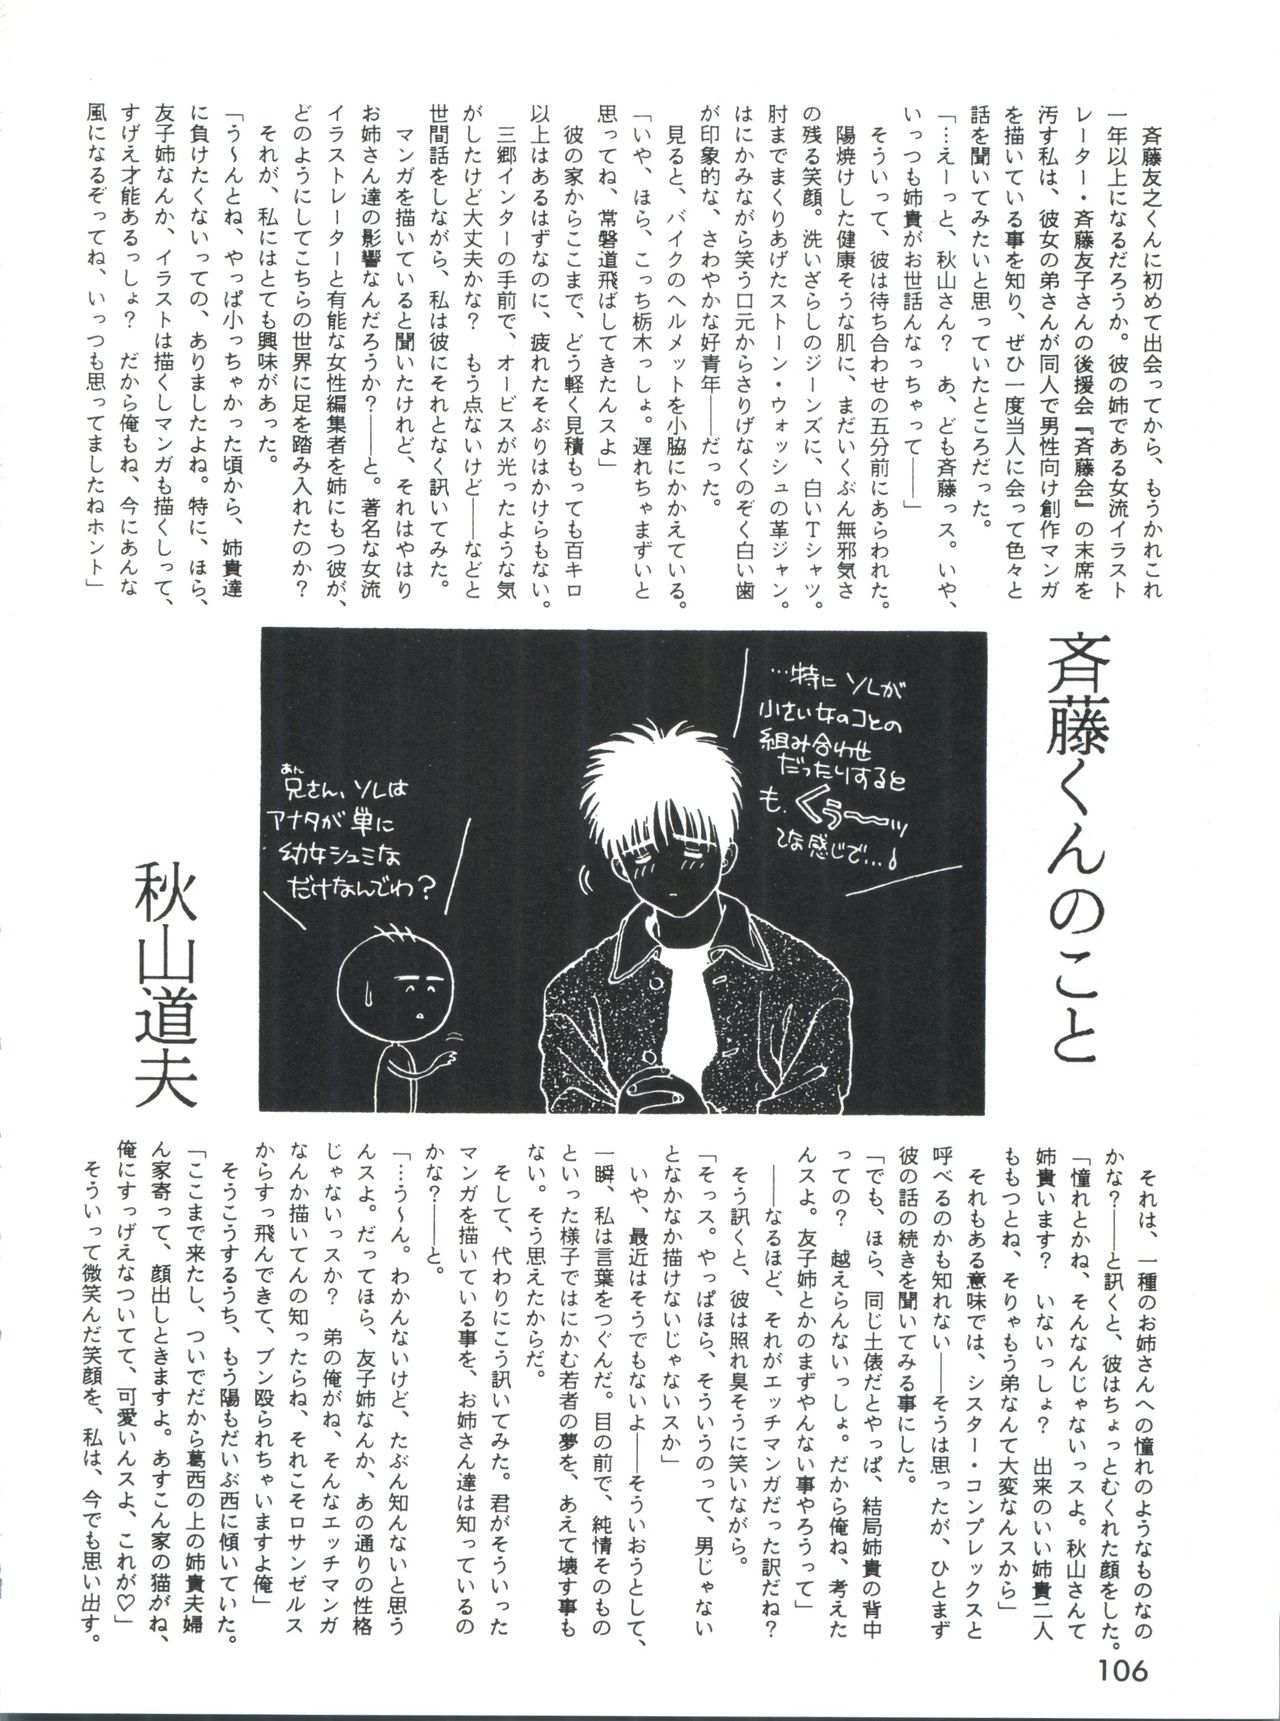 斉藤くんのこと
秋山道夫
　斉藤友之くんに初めて出会ってから、もうかれこれ
一年以上になるだろうか。彼の姉である女流イラスト
レーター・斉藤友子さんの後援会『斉藤会』の末席を
汚す私は、彼女の弟さんが同人で男性向け創作マンガ
を描いている事を知り、ぜひ一度当人に会って色々と
話を聞いてみたいと思っていたところだった。
「…えーっと、秋山さん？　あ、ども斉藤っス。いや、
いっつも姉貴がお世話んなっちゃって――」
　そういって、彼は待ち合わせの五分前にあらわれた。
　陽焼けした健康そうな肌に、まだいくぶん無邪気さ
の残る笑顔。洗いざらしのジーンズに、白いTシャツ。
肘までまくりあげたストーン・ウォッシュの革ジャン。
はにかみながら笑う口元からさりげなくのぞく白い歯
が印象的な、さわやかな好青年――だった。
　見ると、バイクのヘルメットを小脇にかかえている。
「いや、ほら、こっち栃木っしょ。遅れちゃまずいと
思ってね、常磐道飛ばしてきたんスよ」
　彼の家からここまで、どう軽く見積もっても百キロ
以上はあるはずなのに、疲れたそぶりはかけらもない。
　三郷インターの手前で、オービスが光ったような気
がしたけど大丈夫かな？　もう点ないけど――などと
世間話をしながら、私は彼にそれとなく訊いてみた。
　マンガを描いていると聞いたけれど、それはやはり
お姉さん達の影響なんだろうか？――と。著名な女流
イラストレーターと有能な女性編集者を姉にもつ彼が、
どのようにしてこちらの世界に足を踏み入れたのか？
　それが、私にはとても興味があった。
「う～んとね、やっぱ小っちゃかった頃から、姉貴達
に負けたくないっての、ありましたよね。特に、ほら、
友子姉なんか、イラストは描くしマンガも描くしって、
すげえ才能あるっしょ？　だから俺もね、今にあんな
風になるぞってね、いっつも思ってましたねホント」
…特に ソレが
小さい女のコとの
組み合わせ
だったりすると
も、くぅ～～ッ
てな感じで…。
あん
兄さん、ソレは
アナタが 単に
幼女シュミな
だけなんでわ？
　それは、一種のお姉さんへの憧れのようなものなの
かな？――と訊くと、彼はちょっとむくれた顔をした。
「憧れとかね、そんなんじゃないっスよ。秋山さんて
姉貴います？　いないっしょ？　出来のいい姉貴二人
ももつとね、そりゃもう弟なんて大変なんスから」
　それもある意味では、シスター・コンプレックスと
呼べるのかも知れない――そうは思ったが、ひとまず
彼の話の続きを聞いてみる事にした。
「でも、ほら、同じ土俵だとやっぱ、結局姉貴の背中
っての？　越えらんないっしょ。だから俺ね、考えた
んスよ。友子姉とかのまずやんない事やろうって」
　――なるほど、それがエッチマンガだった訳だね？
　そう訊くと、彼は照れ臭そうに笑いながら。
「そっス。やっぱほら、そういうのって、男じゃない
となかなか描けないじゃないスか」
　いや、最近はそうでもないよ――そういおうとして、
一瞬、私は言葉をつぐんだ。目の前で、純情そのもの
といった様子ではにかむ若者の夢を、あえて壊す事も
ない。そう思えたからだ。
　そして、代わりにこう訊いてみた。君がそういった
マンガを描いている事を、お姉さん達は知っているの
かな？――と。
「…う～ん。わかんないけど、たぶん知んないと思う
んスよ。だってほら、友子姉なんか、あの通りの性格
じゃないっスか？　弟の俺がね、そんなエッチマンガ
なんか描いてんの知ったらね、それこそロサンゼルス
からすっ飛んできて、ブン殴られちゃいますよ俺」
　そうこうするうち、もう陽もだいぶ西に傾いていた。
「ここまで来たし、ついでだから葛西の上の姉貴夫婦
ん家寄って、顔出しときますよ。あすこん家の猫がね、
俺にすっげえなついてて、可愛いんスよ、これが♡」
　そういって微笑んだ笑顔を、私は、今でも思い出す。
106